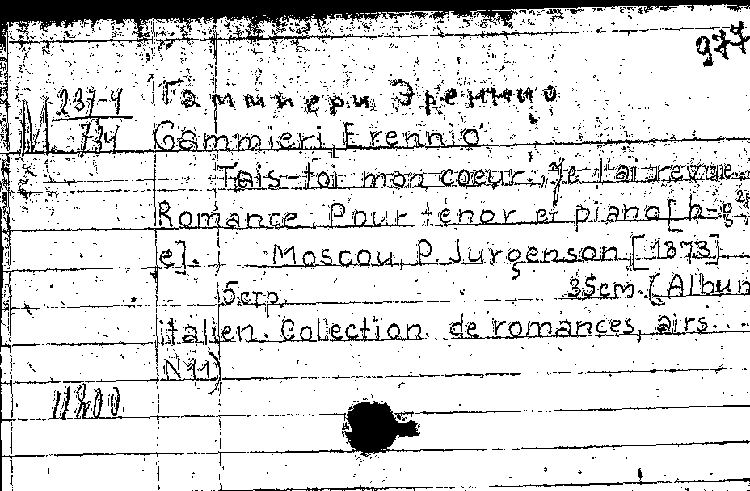 977
М 237-4
734
Гаммиери Эреннио
Gammieri, Erennio
Tais-toi mon coeur..., je l'ai revue.
Romance. Pour ténor et piano [h-g
e]. Moscou, P. Jurgenson [1873].
5 стр. 35 cm. (Album
italien. Collection de romances, airs...
N 11)